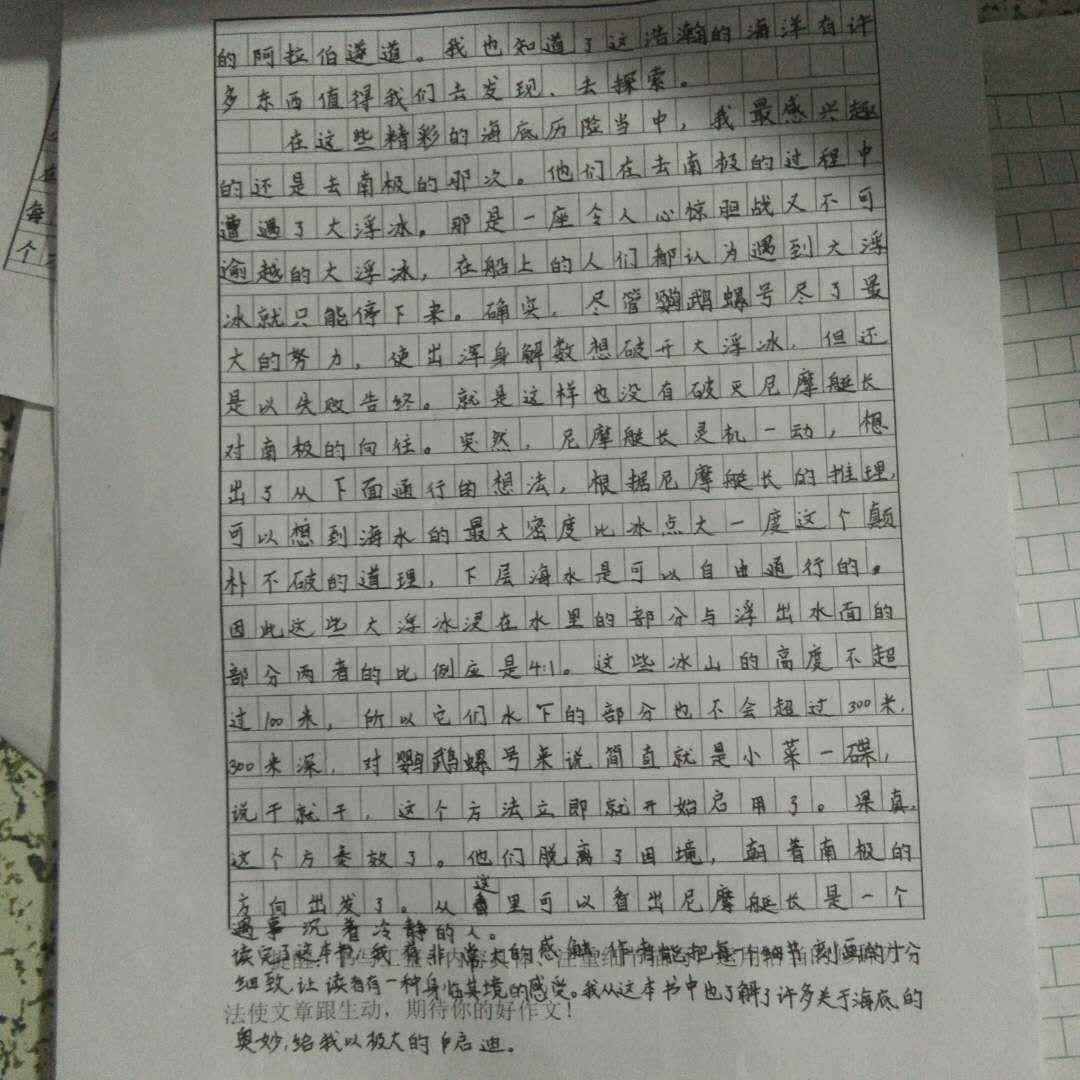 的阿拉伯遂道。我也知道了这浩瀚的海洋有许
多东西值得我们去发现、去探索。
在这些精彩的海底历险当中，我最感兴趣
的还是去南极的那次。他们在去南极的过程中
遭遇了大浮冰。那是一座令人心惊胆战又不可
逾越的大浮冰，在船上的人们都认为遇到大浮
冰就只能停下来。确实，尽管鹦鹉螺号尽了最
大的努力，使出浑身解数想破开大浮冰，但还
是以失败告终。就是这样也没有破灭尼摩艇长
对南极的向往。突然，尼摩艇长灵机一动，想
出了从下面通行的想法，根据尼摩艇长的推理，
可以想到海水的最大密度比冰点大一度这个颠
朴不破的道理，下层海水是可以自由通行的。
因此这些大浮冰浸在水里的部分与浮出水面的
部分两者的比例应是4:1。这些冰山的高度不超
过100米，所以它们水下的部分也不会超过300米，
300米深，对鹦鹉螺号来说简直就是小菜一碟，
说干就干，这个方法立即就开始启用了。果真，
这个方奏效了。他们脱离了困境，朝着南极的
方向出发了。从这里可以看出尼摩艇长是一个
遇事沉着冷静的人。
读完了这本书，我有非常大的感触，作者能把每一个细节刻画的十分
细致，让读者有一种身临其境的感觉。我从这本书中也了解了许多关于海底的
法使文章跟生动，期待你的好作文！
奥妙，给我以极大的启迪。